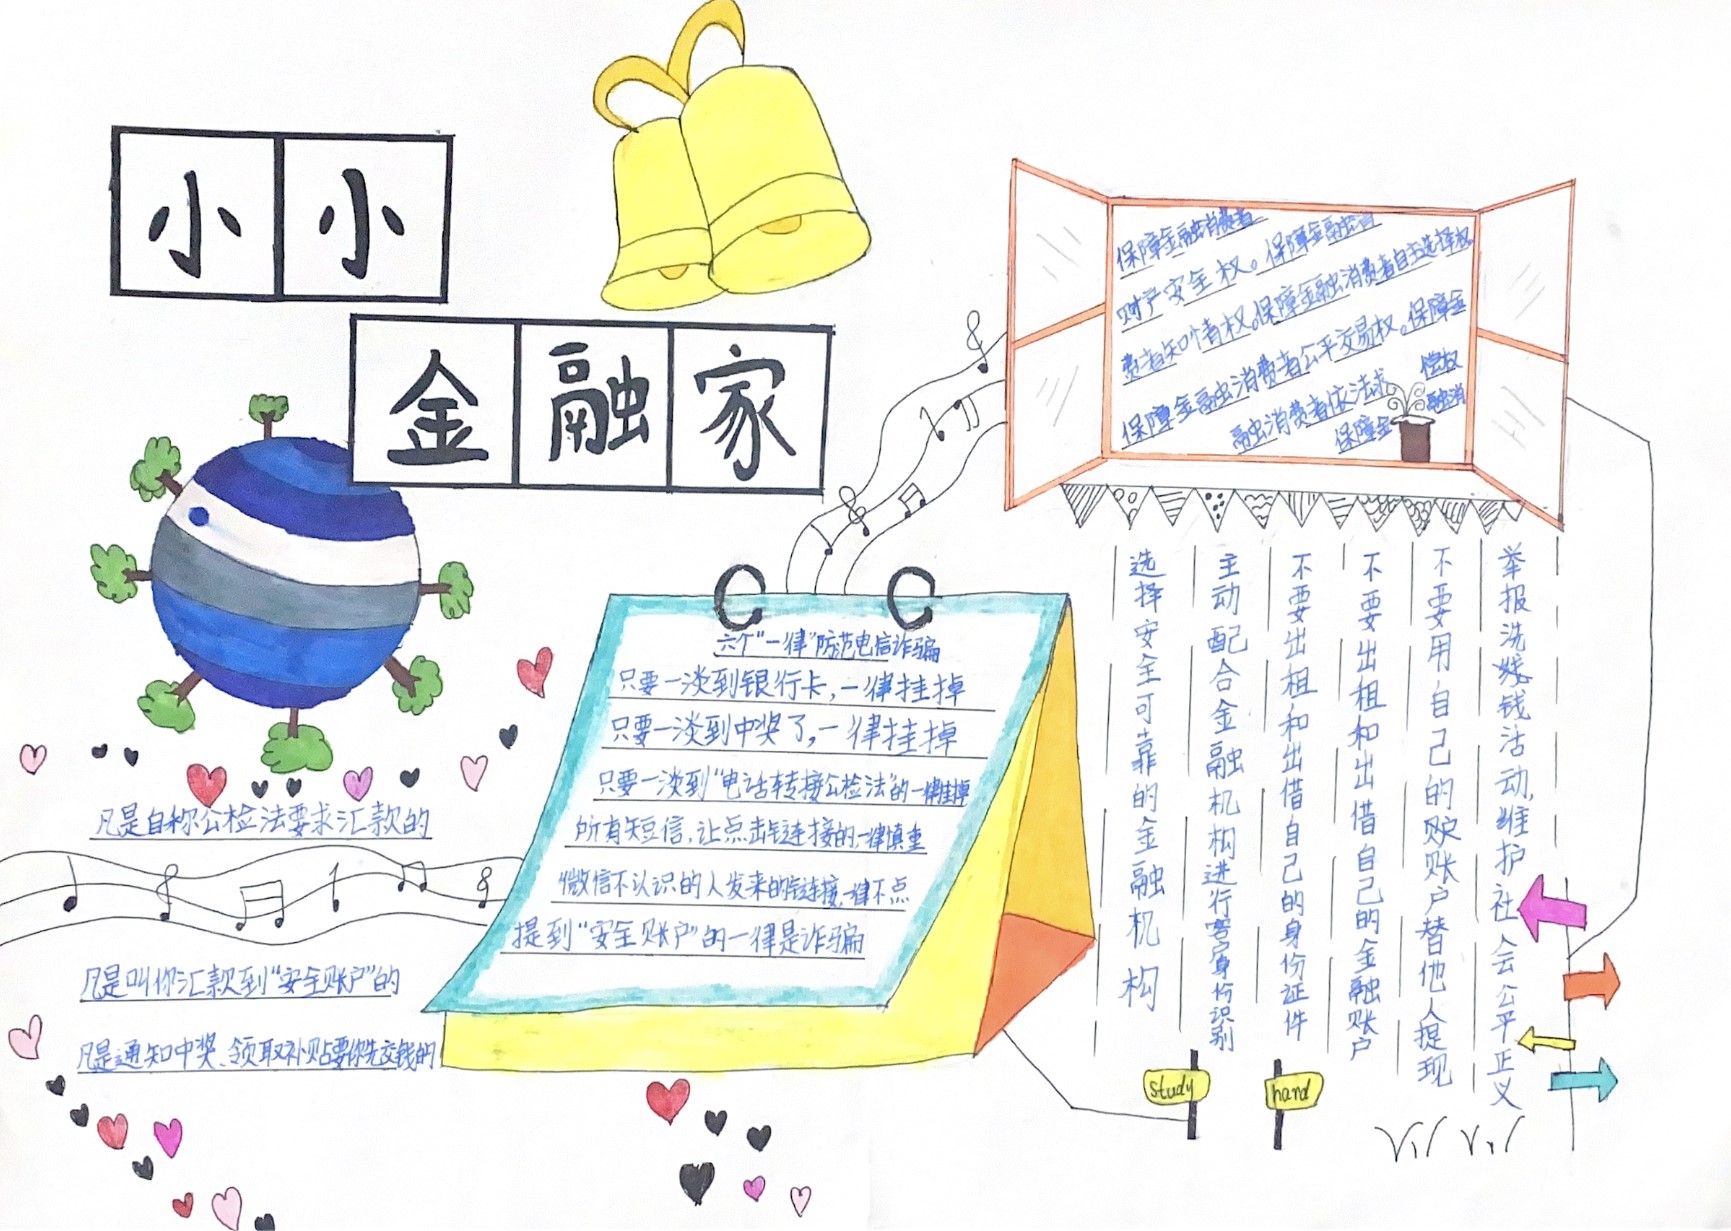 小小
金融家
保障金融消费者
财产安全权。保障金融消
费者知情权。保障金融消费者自主选择权
保障金融消费者公平交易权。保障金
融消费者依法求
偿权
保障金
融消
六个“一律”防范电信诈骗
只要一淡到银行卡，一律挂掉
只要一淡到中奖了，一律挂掉
只要一淡到“电话转接公检法”的一律挂掉
所有短信，让点击链连接的，一律慎重
微信不认识的人发来的链连接，一律不点
提到“安全账户”的一律是诈骗
凡是自称公检法要求汇款的
凡是叫你汇款到“安全账户”的
凡是通知中奖、领取补贴要你先交钱的
选择安全可靠的金融机构
主动配合金融机构进行客户身份识别
不要出租和出借自己的身份证件
不要出租和出借自己的金融账户
不要用自己的账户替他人提现
举报洗钱活动，维护社会公平正义
study
hand